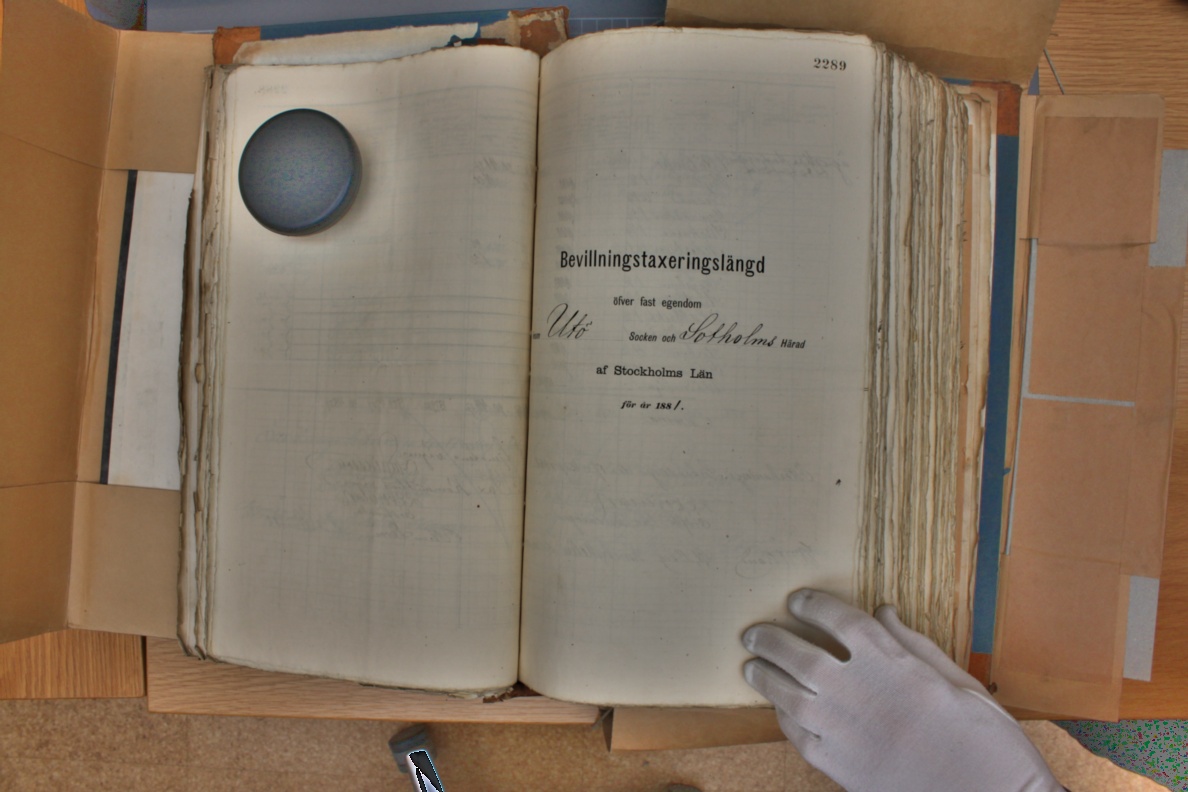 2289
Bevillningstaxeringslängd
öfver fast egendom
Utö Socken och Sotholms Härad
af Stockholms Län
för år 1881.